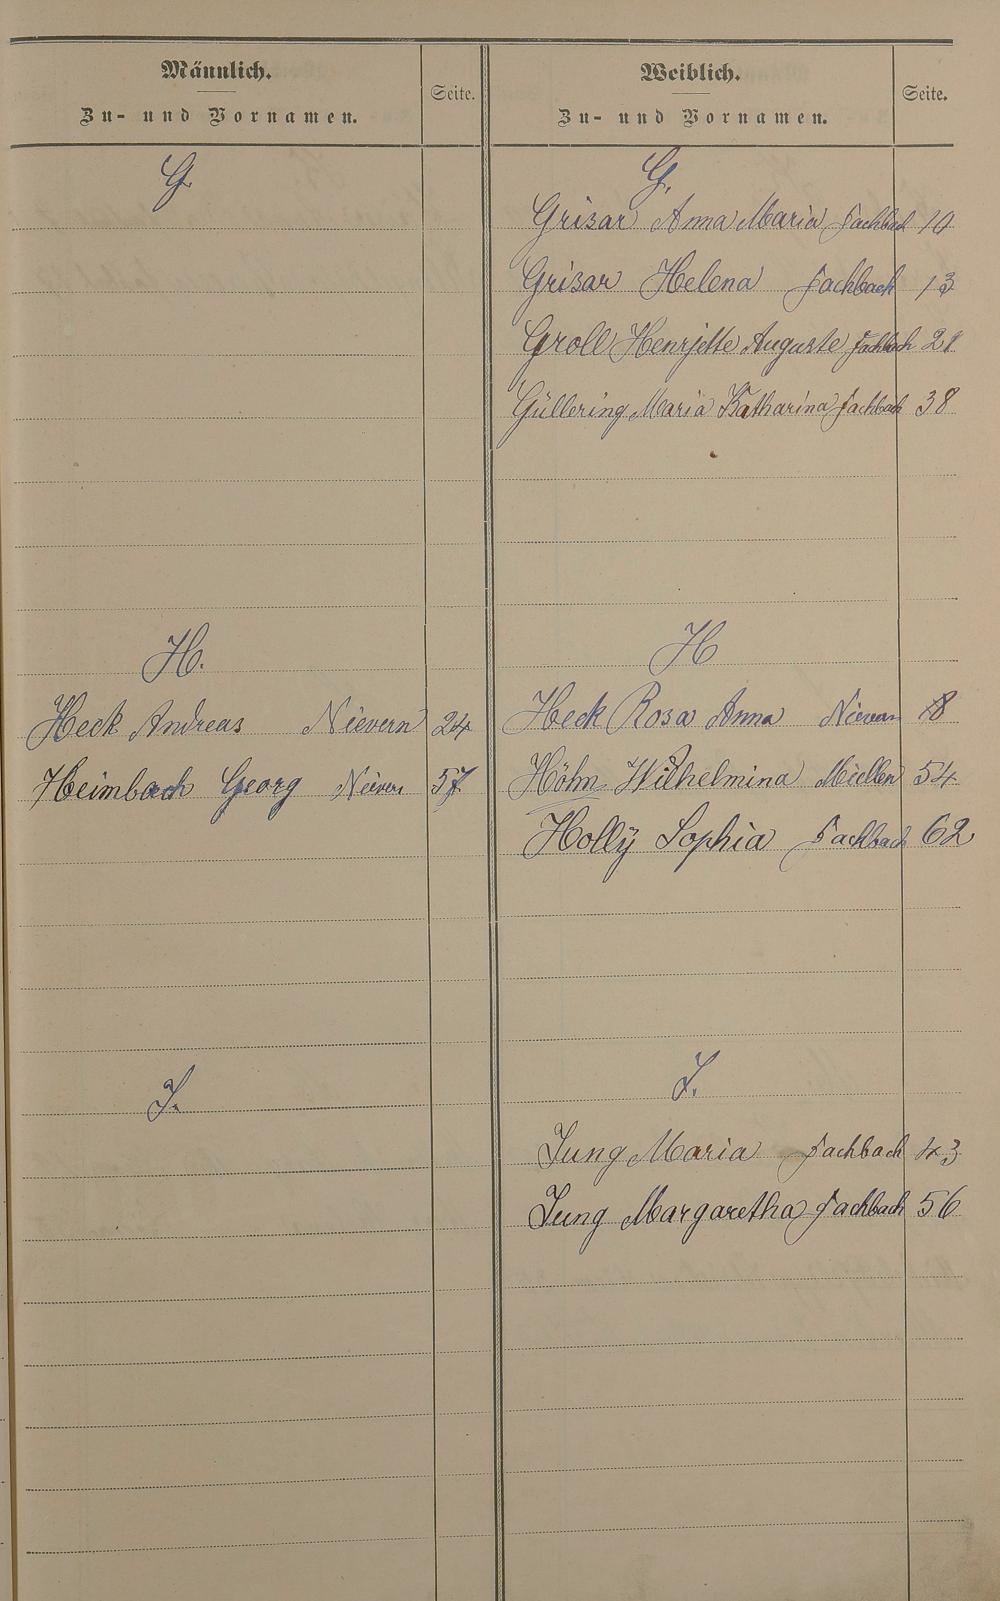 Männlich.
Zu- und Vornamen.
Seite.
G.
H.
Heck Andreas Nievern 24
Heimbach Georg Nievern 57
J.
Weiblich.
Zu- und Vornamen.
Seite.
G.
Grisar Anna Maria Fachbach 10
Grisar Helena Fachbach 13
Groll Henrjette Auguste Fachbach 21
Güllering Maria Katharina Fachbach 38
H
Heck Rosa Anna Nievern 18
Höhn Wilhelmina Miellen 54
Hollÿ Sophia Fachbach 62
J.
Jung Maria Fachbach 43
Jung Margaretha Fachbach 56